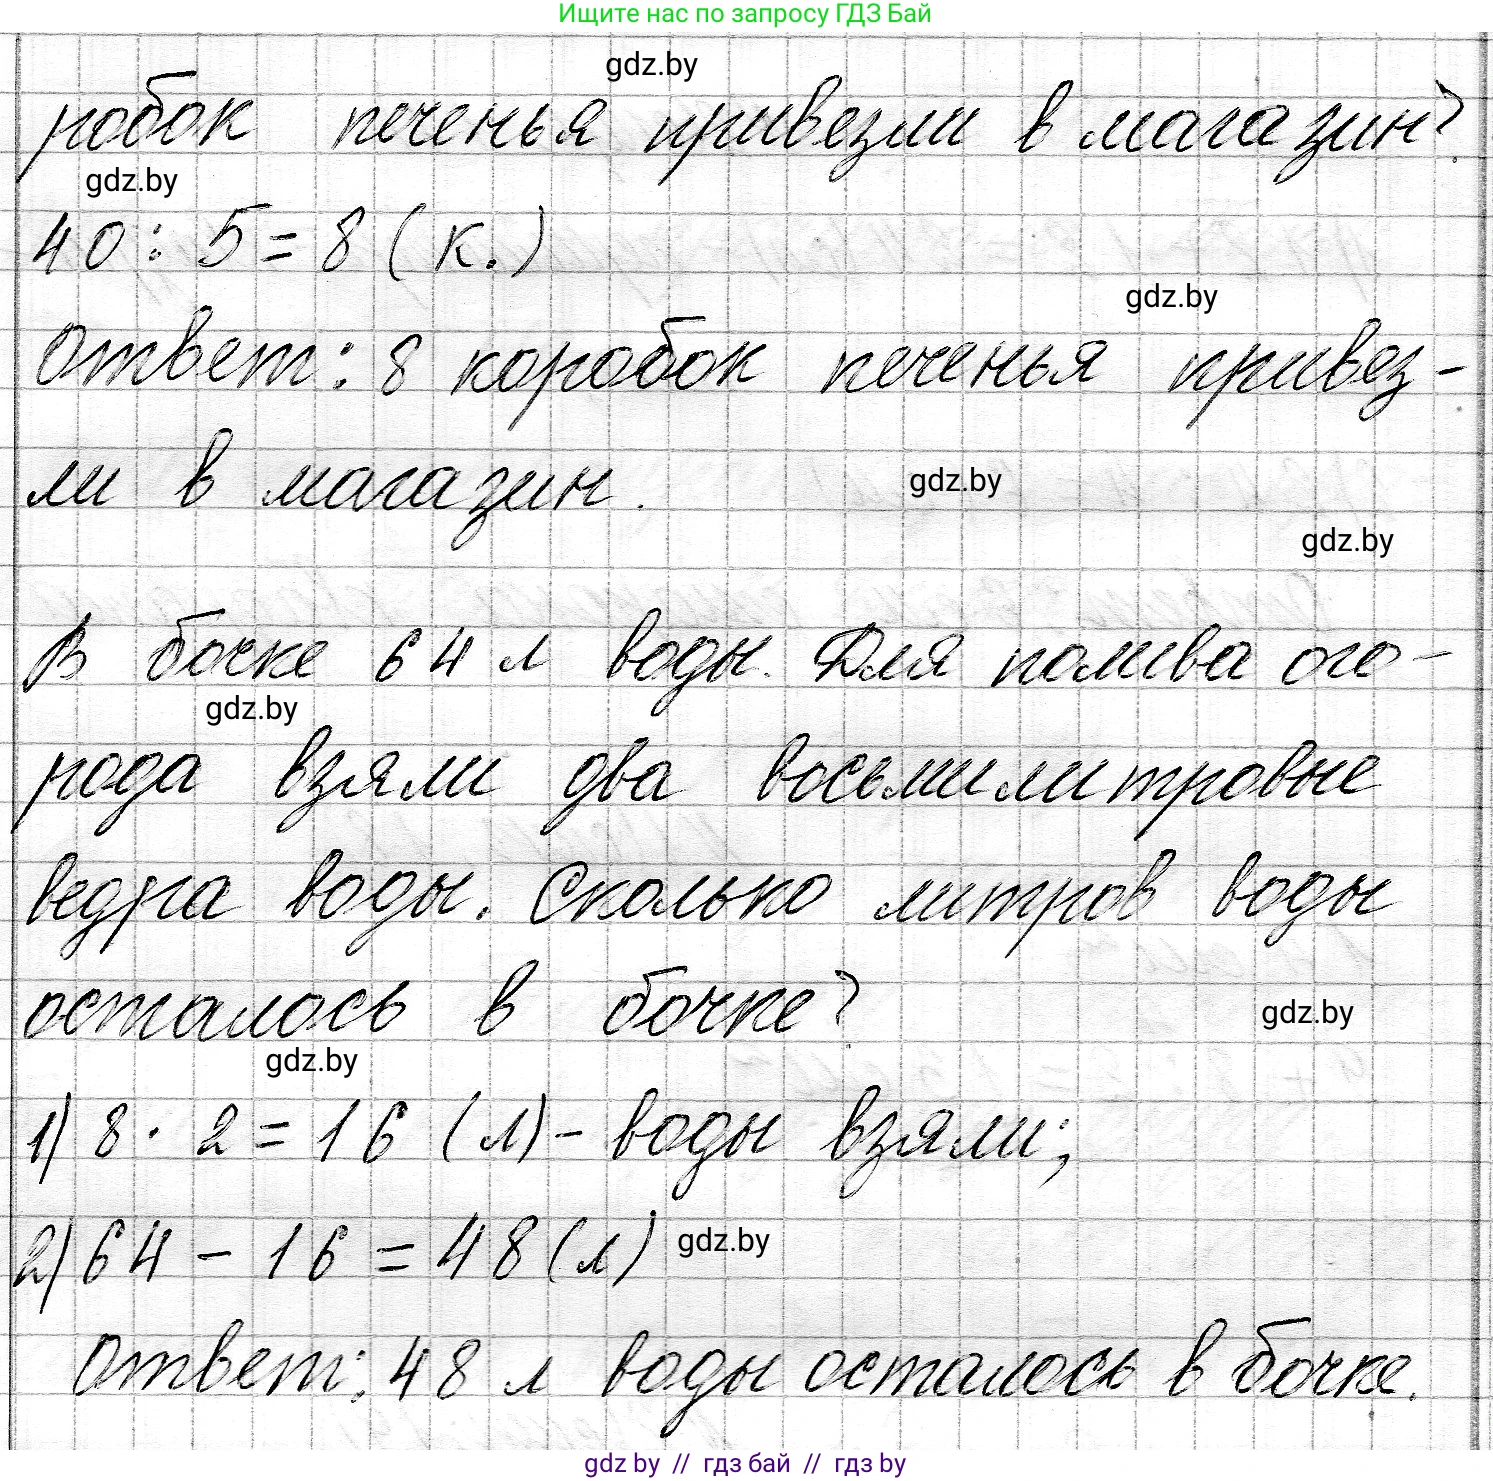 Ищите нас по запросу ГДЗ Бай
gdz.by
робок печенья привезли в магазин?
gdz.by
40 : 5 = 8 (к.)
gdz.by
Ответ: 8 коробок печенья привез-
ли в магазин.
gdz.by
gdz.by
В бочке 64 л воды. Для полива ого-
gdz.by
рода взяли два восьмилитровые
ведра воды. Сколько литров воды
осталось в бочке?
gdz.by
gdz.by
1) 8 · 2 = 16 (л) - воды взяли;
2) 64 - 16 = 48 (л)
gdz.by
Ответ: 48 л воды осталось в бочке.
gdz.by // гдз бай // гдз by